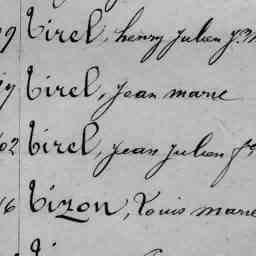 9 Tirel, henry Julien
Tirel, Jean marie
02 Tirel, Jean Julien
16 Tizon, Louis marie